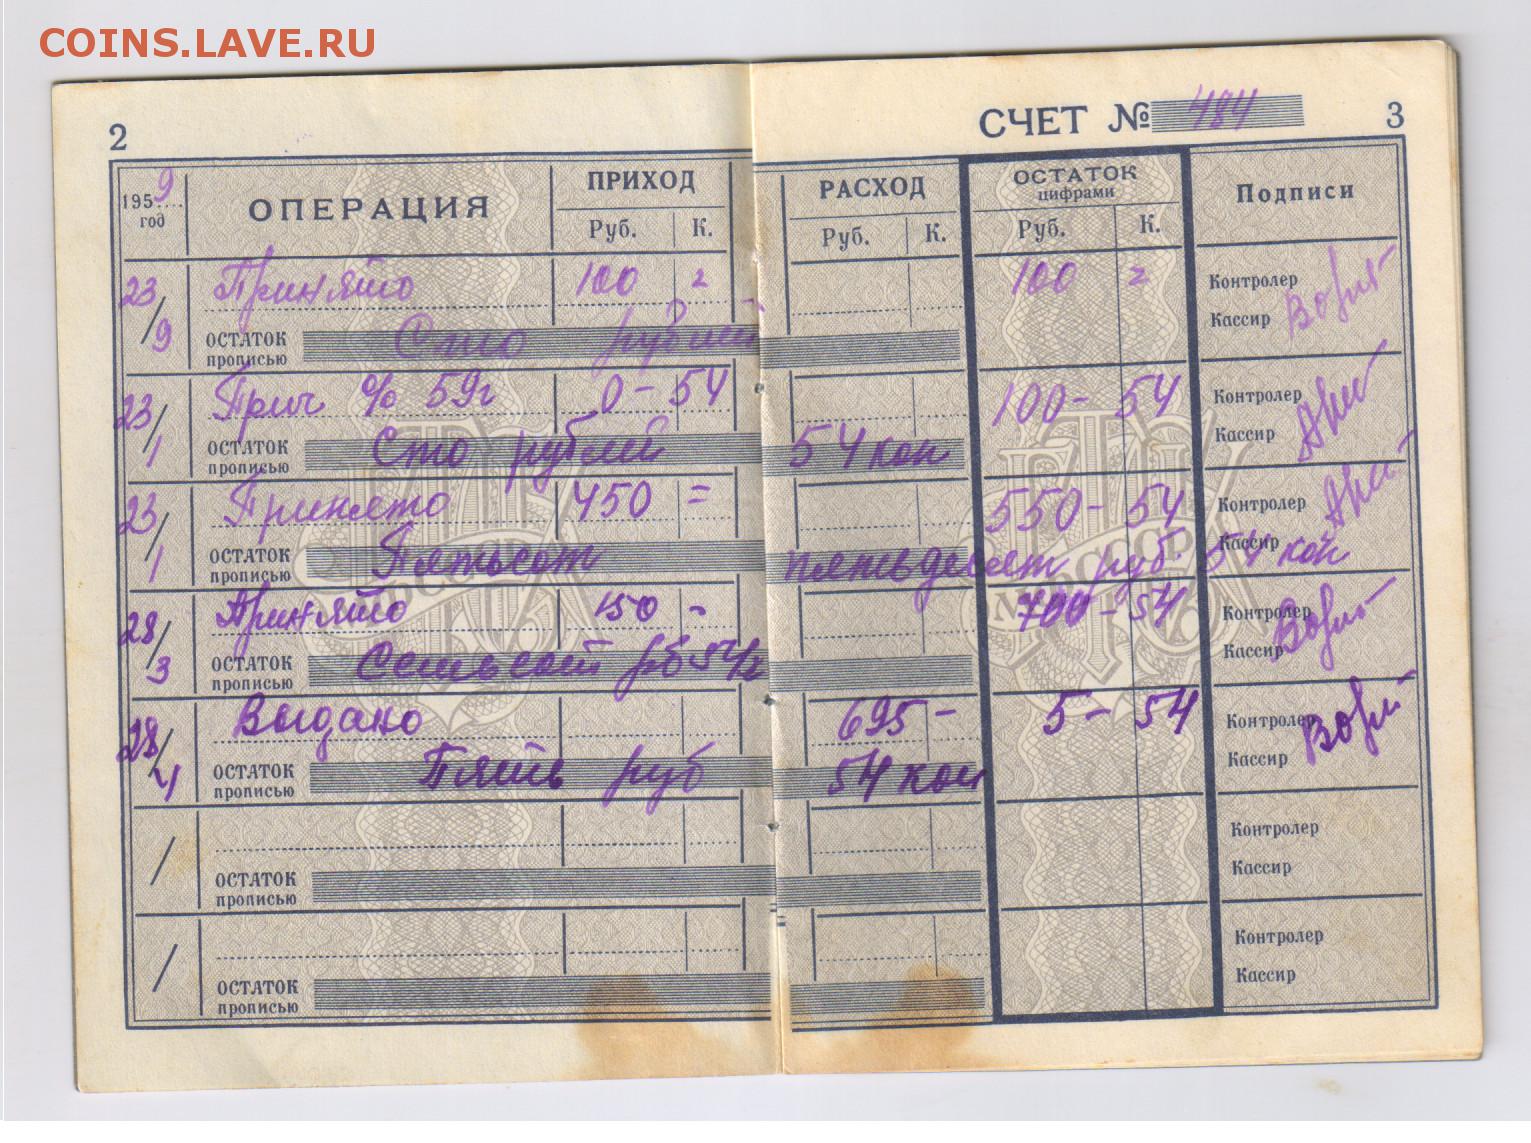 COINS.LAVE.RU
2
СЧЕТ № 484 3
1959 год ОПЕРАЦИЯ ПРИХОД РАСХОД ОСТАТОК цифрами Подписи
Руб. К. Руб. К. Руб. К.
23/9 Принято 100 = 100 = Контролер
ОСТАТОК прописью Сто рублей Кассир
23/1 Прич % 59г 0-54 100-54 Контролер
ОСТАТОК прописью Сто рублей 54 коп Кассир
23/1 Принято 450 = 550-54 Контролер
ОСТАТОК прописью Пятьсот пятьдесят руб. 54 коп Кассир
28/3 Принято 150 - 700-54 Контролер
ОСТАТОК прописью Семьсот рб 54/к Кассир
28/4 Выдано 695- 5-54 Контролер
ОСТАТОК прописью Пять руб 54 коп Кассир
/ Контролер
ОСТАТОК прописью Кассир
/ Контролер
ОСТАТОК прописью Кассир